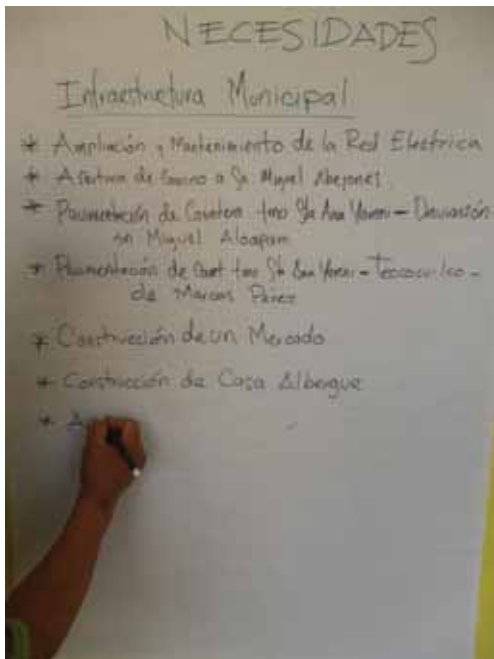 NECESIDADES
Infraestructura Municipal
* Ampliación y Mantenimiento de la Red Electrica
* Apertura de Camino a Sn. Miguel Abejones.
* Pavimentación de Carretera tmo Sta Ana Yareni - Desviación
sn Miguel Aloapam
* Pavimentación de Carret tmo Sta Ana Yareni - Teococuilco -
de Marcos Pérez
* Construcción de un Mercado
* Construcción de Casa Albergue
* A